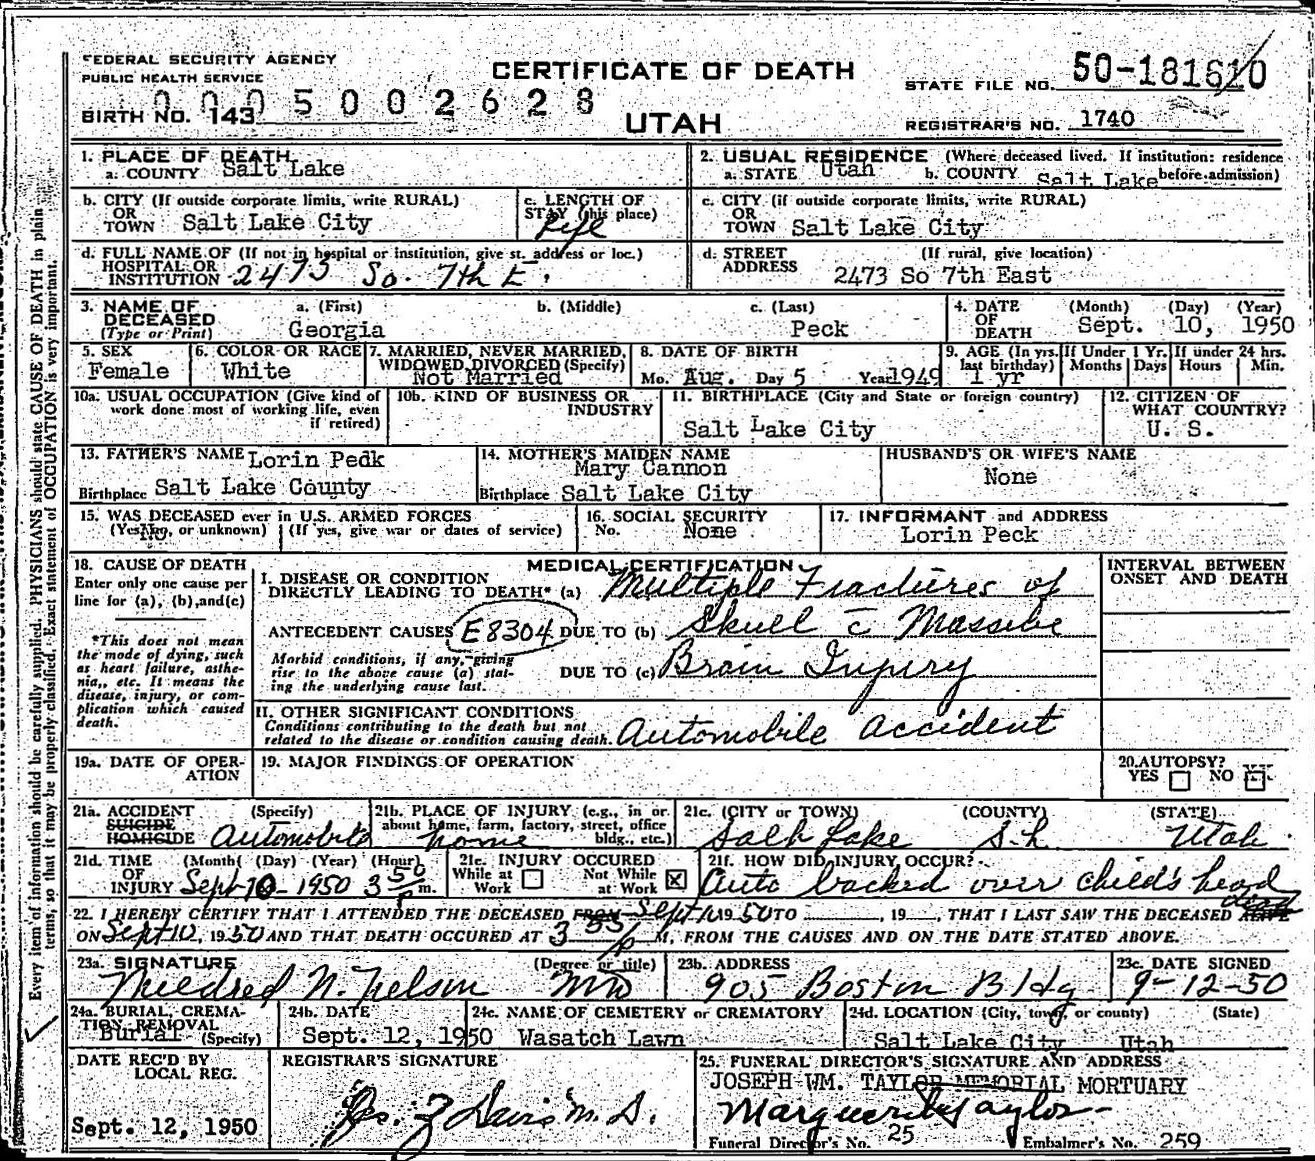 FEDERAL SECURITY AGENCY
PUBLIC HEALTH SERVICE
CERTIFICATE OF DEATH
UTAH
STATE FILE NO. 50-181610
REGISTRAR'S NO. 1740
BIRTH NO. 143 0005002628
Every item of information should be carefully supplied. PHYSICIANS should state CAUSE OF DEATH in plain
terms, so that it may be properly classified. Exact statement of OCCUPATION is very important.
1. PLACE OF DEATH
a. COUNTY Salt Lake
2. USUAL RESIDENCE (Where deceased lived. If institution: residence
a. STATE Utah b. COUNTY Salt Lake before admission)
b. CITY (If outside corporate limits, write RURAL)
OR
TOWN Salt Lake City
c. LENGTH OF
STAY (this place)
Life
c. CITY (if outside corporate limits, write RURAL)
OR
TOWN Salt Lake City
d. FULL NAME OF (If not in hospital or institution, give st. address or loc.)
HOSPITAL OR
INSTITUTION 2473 So. 7th E.
d. STREET (If rural, give location)
ADDRESS 2473 So 7th East
3. NAME OF DECEASED
(Type or Print)
a. (First) b. (Middle) c. (Last)
Georgia Peck
4. DATE OF DEATH (Month) (Day) (Year)
Sept. 10, 1950
5. SEX
Female
6. COLOR OR RACE
White
7. MARRIED, NEVER MARRIED,
WIDOWED, DIVORCED (Specify)
Not Married
8. DATE OF BIRTH
Mo. Aug. Day 5 Year 1949
9. AGE (In yrs. last birthday)
1 yr
If Under 1 Yr.
Months Days
If under 24 hrs.
Hours Min.
10a. USUAL OCCUPATION (Give kind of
work done most of working life, even
if retired)
10b. KIND OF BUSINESS OR
INDUSTRY
11. BIRTHPLACE (City and State or foreign country)
Salt Lake City
12. CITIZEN OF
WHAT COUNTRY?
U. S.
13. FATHER'S NAME Lorin Peck
Birthplace Salt Lake County
14. MOTHER'S MAIDEN NAME
Mary Cannon
Birthplace Salt Lake City
HUSBAND'S OR WIFE'S NAME
None
15. WAS DECEASED ever in U.S. ARMED FORCES
(Yes, No, or unknown) (If yes, give war or dates of service)
16. SOCIAL SECURITY
No. None
17. INFORMANT and ADDRESS
Lorin Peck
18. CAUSE OF DEATH
Enter only one cause per
line for (a), (b), and (c)
*This does not mean
the mode of dying, such
as heart failure, asthe-
nia, etc. It means the
disease, injury, or com-
plication which caused
death.
MEDICAL CERTIFICATION
I. DISEASE OR CONDITION
DIRECTLY LEADING TO DEATH* (a) Multiple Fractures of
ANTECEDENT CAUSES E8304 DUE TO (b) Skull c̄ Massive
Morbid conditions, if any, giving
rise to the above cause (a) stat-
ing the underlying cause last.
DUE TO (c) Brain Injury
II. OTHER SIGNIFICANT CONDITIONS
Conditions contributing to the death but not
related to the disease or condition causing death. Automobile accident
INTERVAL BETWEEN
ONSET AND DEATH
19a. DATE OF OPER-
ATION
19. MAJOR FINDINGS OF OPERATION
20. AUTOPSY?
YES NO
21a. ACCIDENT (Specify)
SUICIDE
HOMICIDE Automobile
21b. PLACE OF INJURY (e.g., in or
about home, farm, factory, street, office
bldg., etc.)
home
21c. (CITY or TOWN) (COUNTY) (STATE)
Salt Lake S.L Utah
21d. TIME (Month) (Day) (Year) (Hour)
OF
INJURY Sept 10-1950 3 50 P m.
21e. INJURY OCCURED
While at Work Not While at Work
21f. HOW DID INJURY OCCUR?
Auto backed over child's head
22. I HEREBY CERTIFY THAT I ATTENDED THE DECEASED FROM Sept 10 1950 TO , 19 , THAT I LAST SAW THE DECEASED ALIVE dead
ON Sept 10, 1950 AND THAT DEATH OCCURED AT 3 55 P M, FROM THE CAUSES AND ON THE DATE STATED ABOVE.
23a. SIGNATURE (Degree or title)
Mildred N. Nelson MD
23b. ADDRESS
905 Boston Bldg
23c. DATE SIGNED
9-12-50
24a. BURIAL, CREMA-
TION, REMOVAL
Burial (Specify)
24b. DATE
Sept. 12, 1950
24c. NAME OF CEMETERY or CREMATORY
Wasatch Lawn
24d. LOCATION (City, town, or county) (State)
Salt Lake City Utah
DATE REC'D BY
LOCAL REG.
Sept. 12, 1950
REGISTRAR'S SIGNATURE
M. D.
25. FUNERAL DIRECTOR'S SIGNATURE AND ADDRESS
JOSEPH WM. TAYLOR MEMORIAL MORTUARY
Marguerite Taylor
Funeral Director's No. 25 Embalmer's No. 259